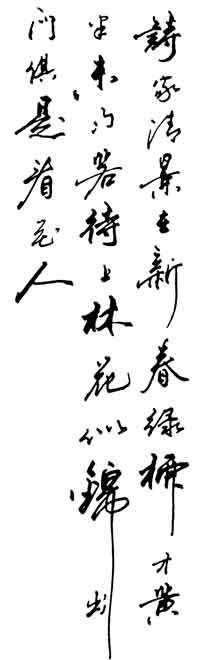 詩家清景在新春綠柳才黃
半未勻若待上林花似錦出
門俱是看花人